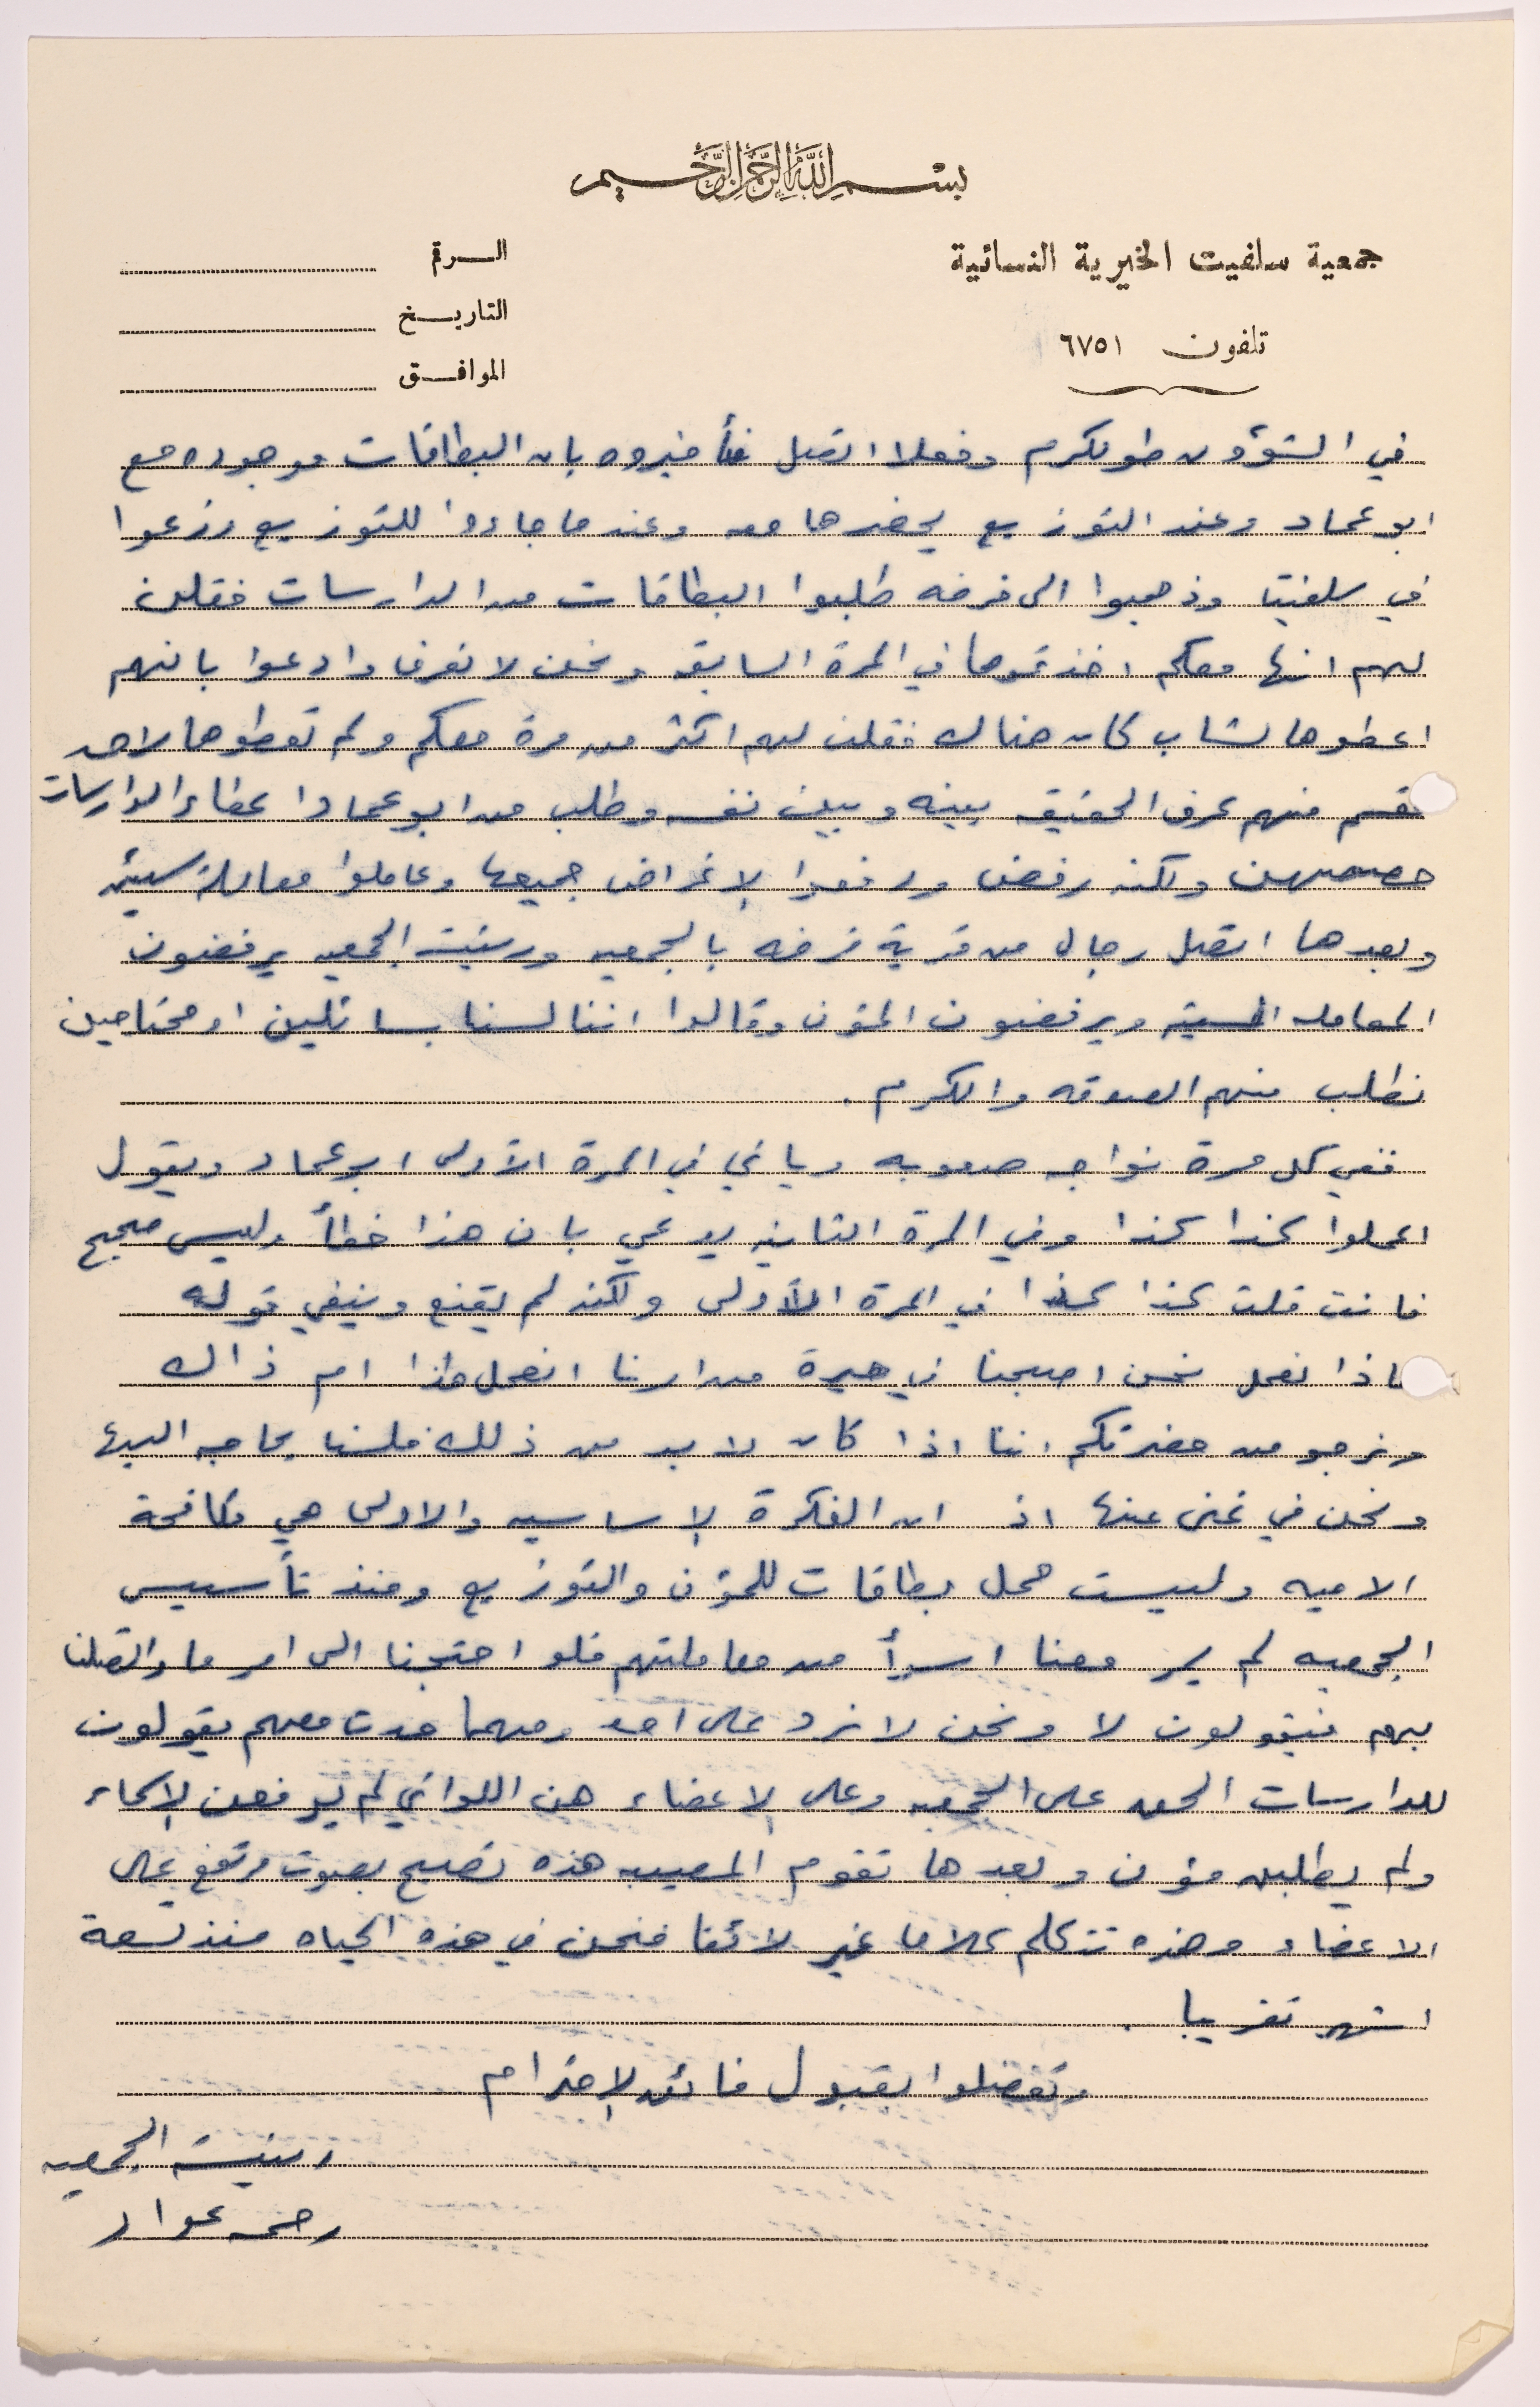 بسم الله الرحمن الرحيم
جمعية سلفيت الخيرية النسائية
تلفون ٦٧٥١
الرقم
التاريخ
الموافق
في الشؤون طولكرم وفعلا اتصل فأخبروه بان البطاقات موجوده مع
ابو عماد وعند التوزيع يحضرها معه وعندما جاءوا للتوزيع وزعوا
في سلفيت وذهبوا الى فرخه طلبوا البطاقات من الدارسات فقلن
لهم انها معكم اخذتموها في المرة السابقه ونحن لا نعرف وادعوا بانهم
اعطوها لشاب كان هناك فقلن لهم اكثر من مرة معكم ولم تعطوها لاحد
قسم منهم عرف الحقيقه بينه وبين نفسه وطلب من ابو عماد اعطاء الدارسات
حصصهن ولكنه رفض ورفعوا الاغراض جميعها وعاملوا معاملة سيئه
وبعدها اتصل رجال من قرية فرخه بالجمعيه ورئيسة الجمعيه يرفضون
المعامله السيئه ويرفضون المؤن وقالوا اننا لسنا بسائلين او محتاجين
نطلب منهم الصدقه والكرم .
ففي كل مرة نواجه صعوبه وياتي في المرة الأولى ابو عماد ويقول
اعملوا كذا كذا وفي المرة الثانيه يدعي بان هذا خطأ وليس صحيح
فانت قلت كذا كذا في المرة الأولى ولكنه لم يقنع وينفي قوله
ماذا نعمل نحن اصبحنا في حيرة من امرنا انعمل هذا ام ذاك
ونرجو من حضرتكم اننا اذا كان لا بد من ذلك فلسنا بحاجه اليها
ونحن في غنى عنها اذ ان الفكرة الاساسيه والاولى هي مكافحة
الاميه وليست محل بطاقات للمؤن والتوزيع ومنذ تأسيس
الجمعيه لم ير معنا اسوأ من معاملتهم فلو احتجنا الى امر ما واتصلنا
بهم فيقولون لا ونحن لا نرد على احد ومهما حدث معهم يقولون
للدارسات الحق على الجمعيه وعلى الاعضاء هن اللواتي لم يرفعن الاسماء
ولم يطلبن مؤن وبعدها تقوم المصيبه هذه تصيح بصوت مرتفع على
الاعضاء وهذه تتكلم كلاما غير لائقا فنحن في هذه الحياه منذ تسعة
اشهر تقريبا .
وتفضلوا بقبول فائق الاحترام
رئيسة الجمعيه
رحمه عواد